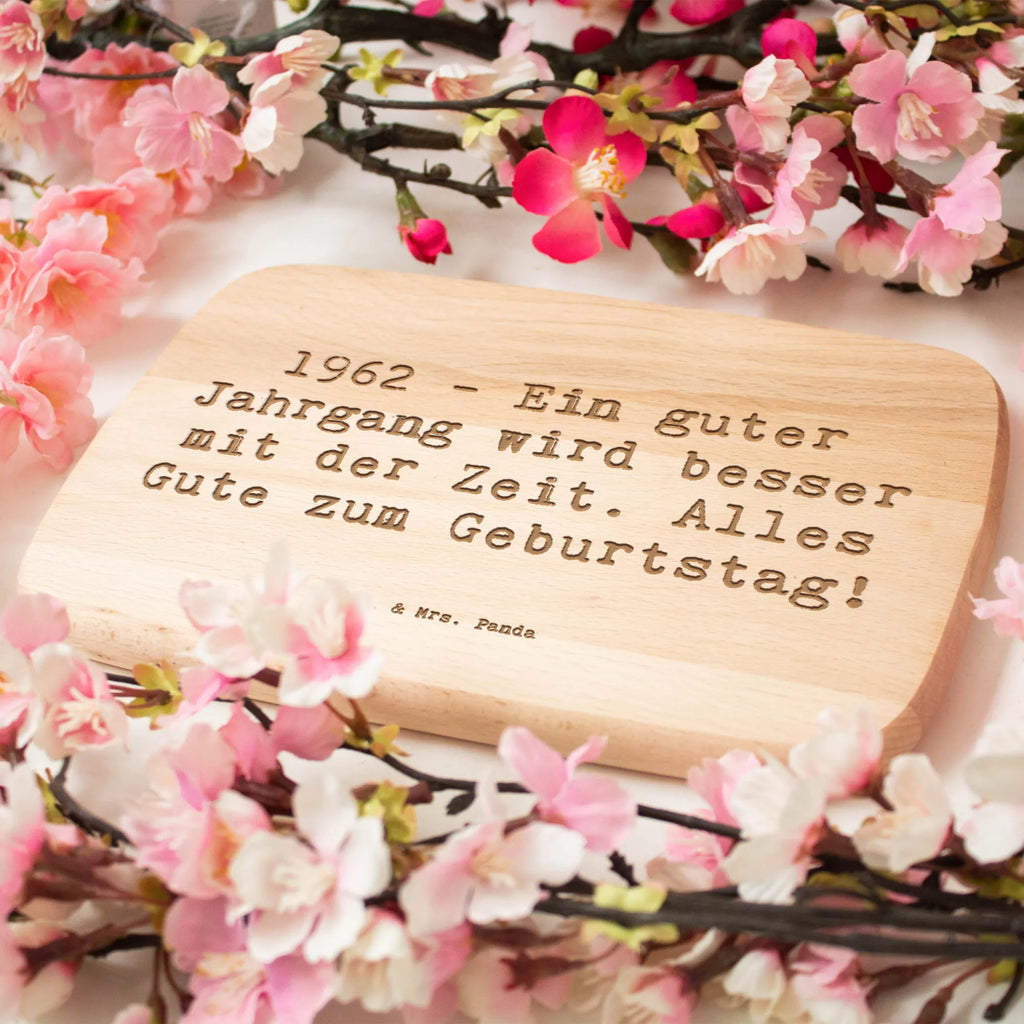 1962 - Ein guter
Jahrgang wird besser
mit der Zeit. Alles
Gute zum Geburtstag!
. & Mrs. Panda